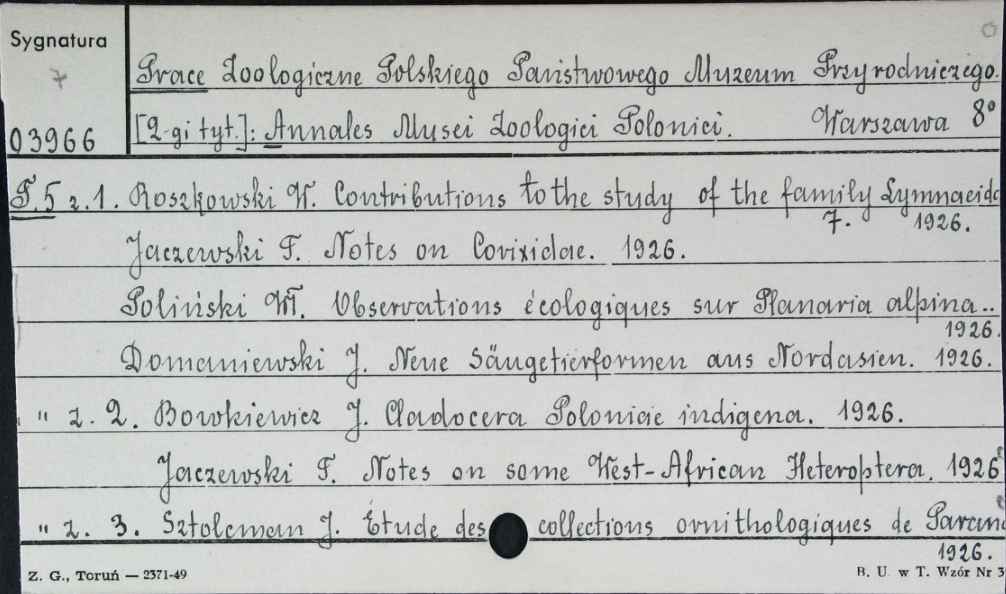 Sygnatura
7
03966
Prace Zoologiczne Polskiego Państwowego Muzeum Przyrodniczego.
[2-gi tyt.]: Annales Musei Zoologici Polonici. Warszawa 8°
T.5 z.1. Roszkowski W. Contributions to the study of the family Lymnaeida
7. 1926.
Jaczewski T. Notes on Corixidae. 1926.
Poliński Wł. Observations écologiques sur Planaria alpina..
1926.
Domaniewski J. Neue Säugetierformen aus Nordasien. 1926.
" z. 2. Bowkiewicz J. Cladocera Poloniae indigena. 1926.
Jaczewski T. Notes on some West-African Heteroptera. 1926
" z. 3. Sztolcman J. Étude des collections ornithologiques de Parana
1926.
Z. G., Toruń — 2371-49
B. U. w T. Wzór Nr 3